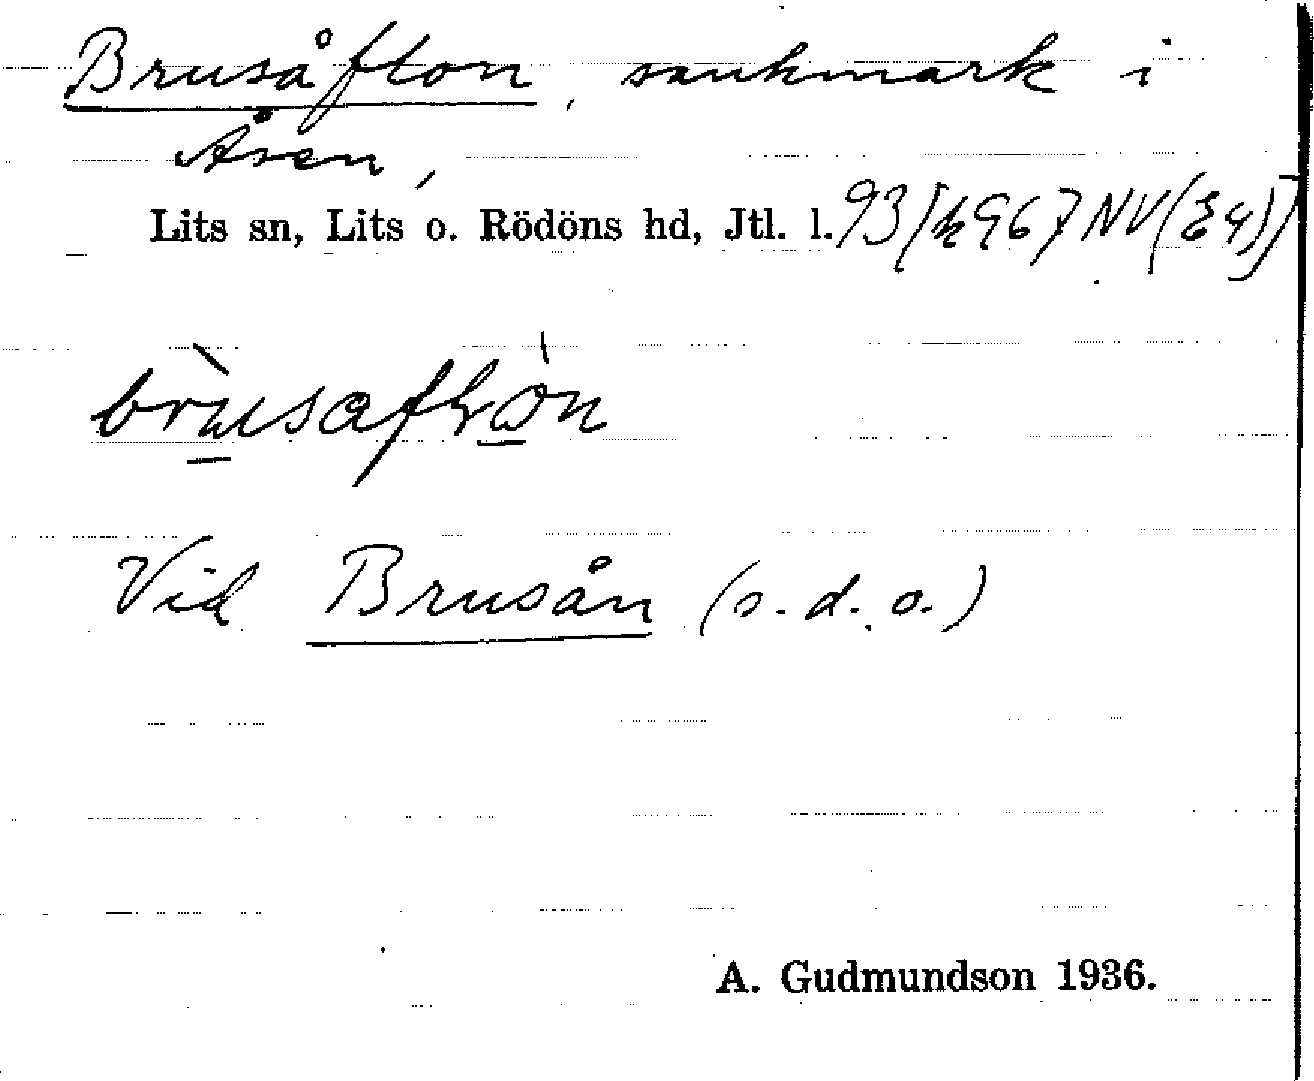 Brusåflon, sankmark i
Åsen,
Lits sn, Lits o. Rödöns hd, Jtl. l. 93
Vid Brusån (s. d. o.)
A. Gudmundson 1936.